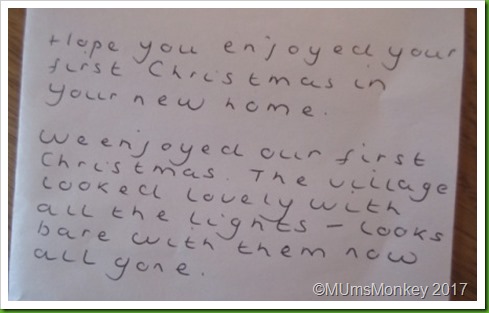 Hope you enjoyed your
first Christmas in
your new home.
We enjoyed our first
Christmas. The village
looked lovely with
all the lights – looks
bare with them now
all gone.
©MUmsMonkey 2017